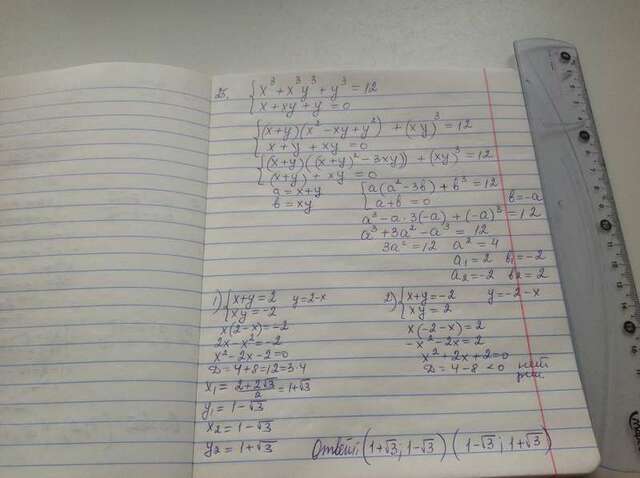 25. { x³ + x³y³ + y³ = 12
{ x + xy + y = 0
{ (x+y)(x² - xy + y²) + (xy)³ = 12
{ x + y + xy = 0
{ (x+y)((x+y)² - 3xy)) + (xy)³ = 12
{ (x+y) + xy = 0
a = x+y
b = xy
{ a(a² - 3b) + b³ = 12
{ a+b = 0 b = -a
a³ - a·3(-a) + (-a)³ = 12
a³ + 3a² - a³ = 12
3a² = 12 a² = 4
a₁ = 2 b₁ = -2
a₂ = -2 b₂ = 2
1) { x+y = 2 y = 2-x
{ xy = -2
x(2-x) = -2
2x - x² = -2
x² - 2x - 2 = 0
D = 4+8 = 12 = 3·4
x₁ = (2+2√3)/2 = 1+√3
y₁ = 1-√3
x₂ = 1-√3
y₂ = 1+√3
2) { x+y = -2 y = -2-x
{ xy = 2
x(-2-x) = 2
-x² - 2x = 2
x² + 2x + 2 = 0
D = 4-8 < 0 нет
реш
Ответ: (1+√3; 1-√3) (1-√3; 1+√3)